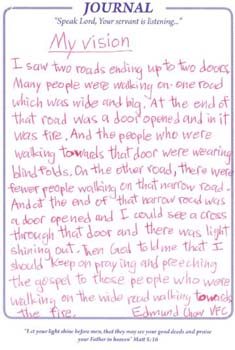 JOURNAL
"Speak Lord, Your servant is listening..."
My vision
I saw two roads ending up to two doors.
Many people were walking on one road
which was wide and big. At the end of
that road was a door opened and in it
was fire. And the people who were
walking towards that door were wearing
blindfolds. On the other road, there were
fewer people walking on that narrow road.
And at the end of that narrow road was
a door opened and I could see a cross
through that door and there was light
shining out. Then God told me that I
should keep on praying and preeching
the gospel to those people who were
walking on the wide road walking towards
the fire. Edmund Chow VFC
"Let your light shine before men, that they may see your good deeds and praise
your Father in heaven" Matt 5:16